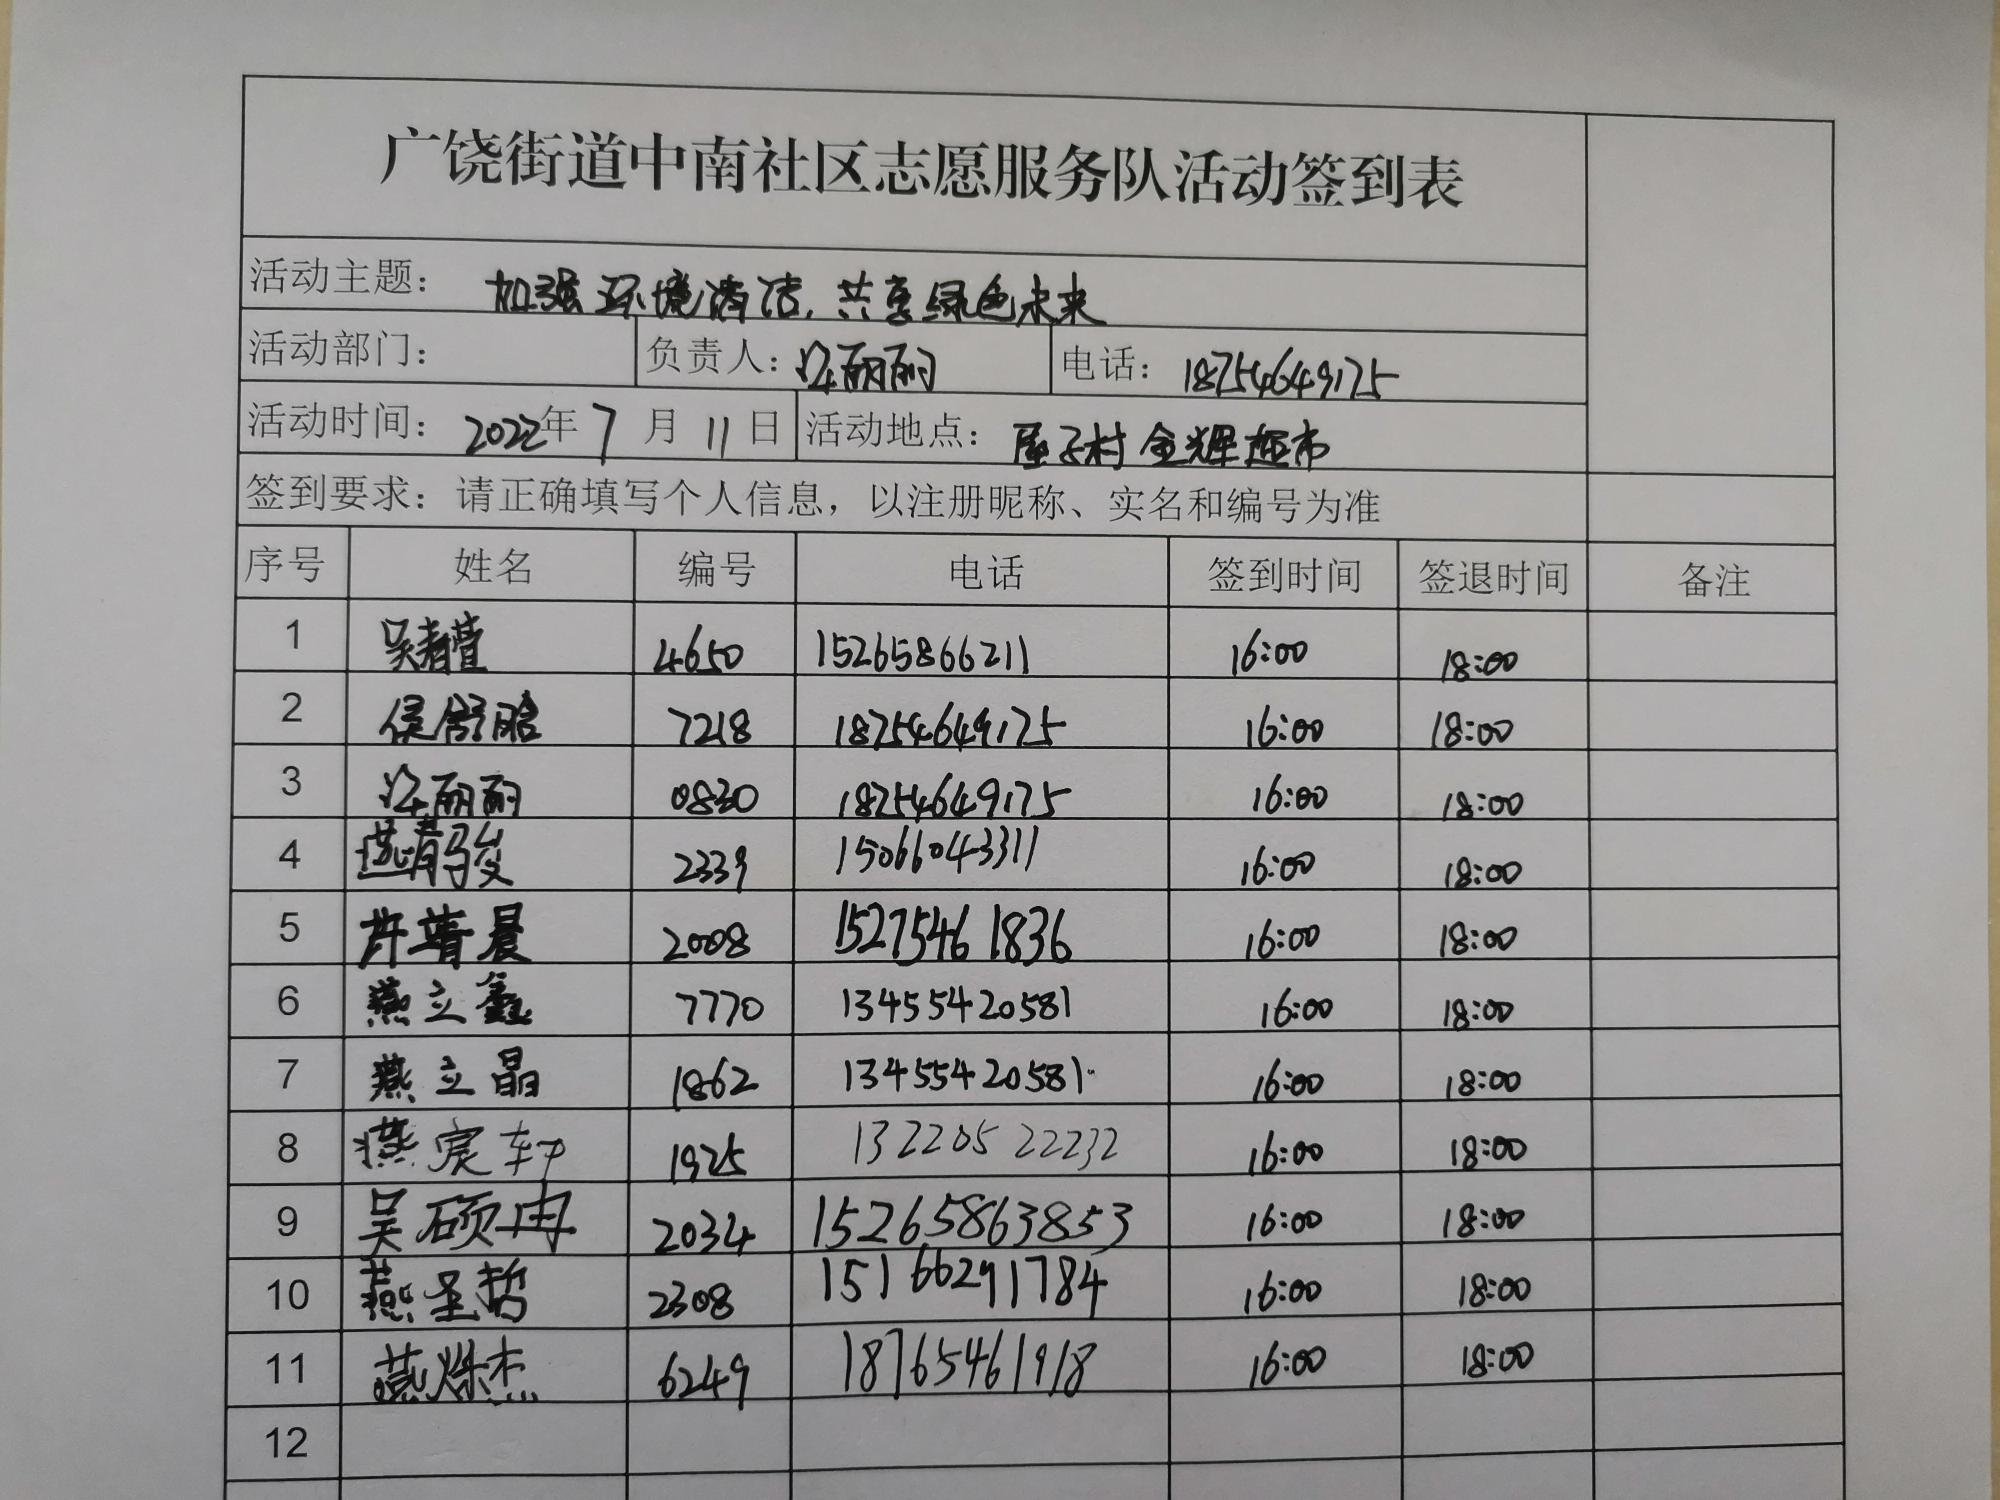 广饶街道中南社区志愿服务队活动签到表
活动主题： 加强环境清洁，共享绿色未来
活动部门： 负责人： 丽丽 电话： 18754649175
活动时间： 2022年7月11日 活动地点： 村金辉超市
签到要求：请正确填写个人信息，以注册昵称、实名和编号为准
序号 姓名 编号 电话 签到时间 签退时间 备注
1 吴春萱 4650 15265866211 16:00 18:00
2 侯舒晗 7218 18754649175 16:00 18:00
3 丽丽 0830 18754649175 16:00 18:00
4 2339 15066043311 16:00 18:00
5 许靖晨 2008 15275461836 16:00 18:00
6 燕立鑫 7770 13455420581 16:00 18:00
7 燕立晶 1862 13455420581 16:00 18:00
8 燕宸轩 1925 13220522232 16:00 18:00
9 吴硕冉 2034 15265863853 16:00 18:00
10 燕圣哲 2308 15166291784 16:00 18:00
11 燕烁杰 6249 18765461918 16:00 18:00
12